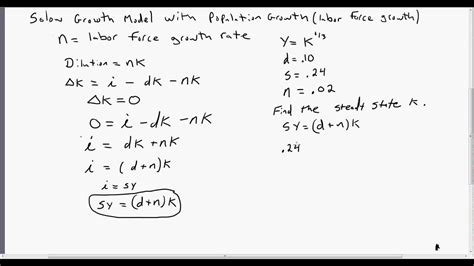 Solow Growth Model with Population Growth (labor force growth)
n = labor force growth rate
Dilution = nK
ΔK = i - dK - nK
ΔK = 0
0 = i - dK - nK
i = dK + nK
i = (d+n)K
i = sY
sY = (d+n)K
Y = K^1/3
d = .10
s = .24
n = .02
Find the steady state K.
sY = (d+n)K
.24